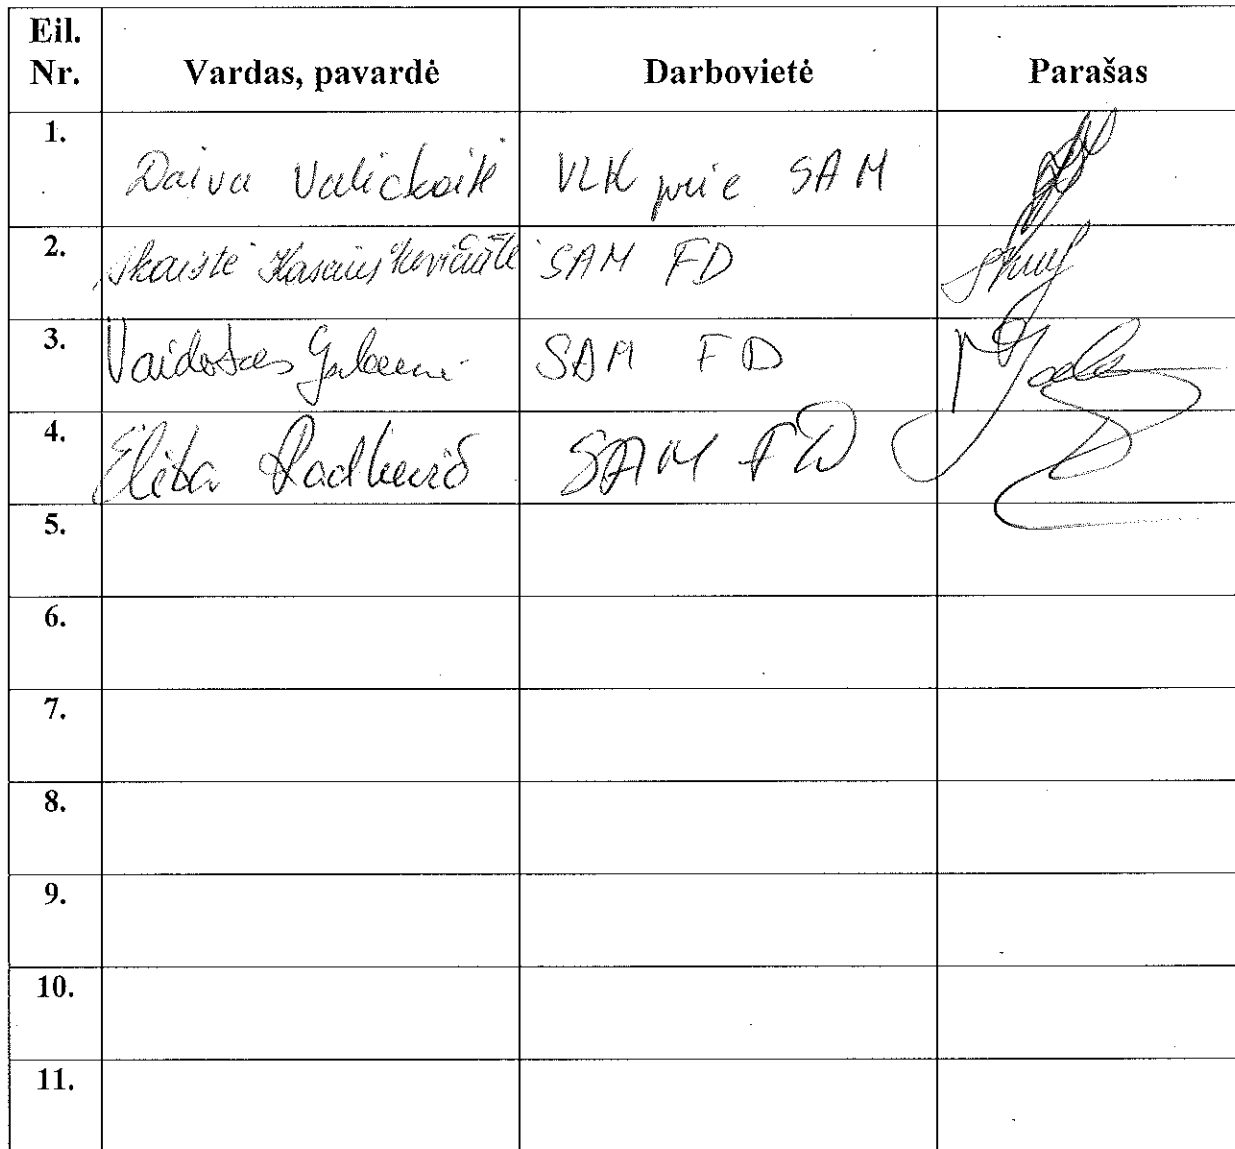 Eil. Nr. Vardas, pavardė Darbovietė Parašas
1. Daiva Valickaitė VLK prie SAM
2. Skaistė SAM FD
3. Vaidotas SAM FD
4. Elita Radkevič SAM FD
5.
6.
7.
8.
9.
10.
11.